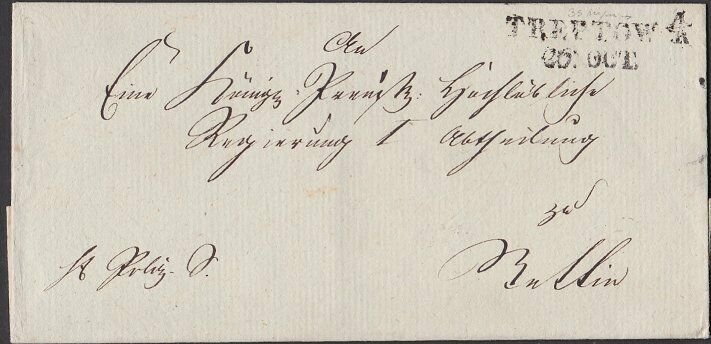 TREPTOW
26. OCT.
An
Eine Königl. Preuß. Hochlöbliche
Regierung I Abtheilung
zu
Stettin
Poliz. S.